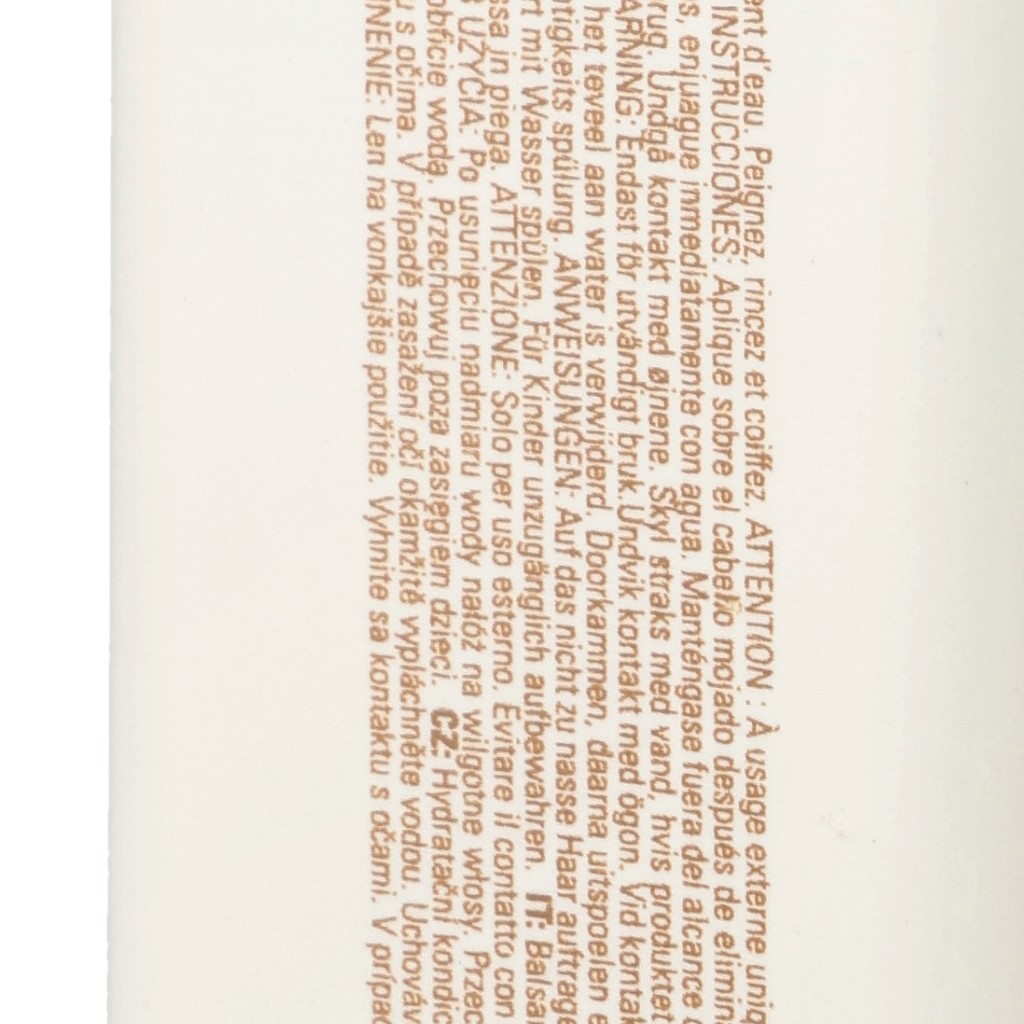 d'eau. Peignez, rincez et coiffez. ATTENTION : À usage externe
INSTRUCCIONES: Aplique sobre el cabello mojado después de
enjuague inmediatamente con agua. Manténgase fuera del alcance
Undgå kontakt med øjnene. Skyl straks med vand, hvis produktet
Endast för utvändigt bruk. Undvik kontakt med ögon. Vid
het teveel aan water is verwijderd. Doorkammen, daarna uitspoelen
spülung. ANWEISUNGEN: Auf das nicht zu nasse Haar
mit Wasser spülen. Für Kinder unzugänglich aufbewahren. IT:
in piega. ATTENZIONE: Solo per uso esterno. Evitare il contatto con
UŻYCIA: Po usunięciu nadmiaru wody nałóż na wilgotne włosy.
obficie wodą. Przechowuj poza zasięgiem dzieci. CZ: Hydratační
s očima. V případě zasažení očí okamžitě vypláchněte vodou.
Len na vonkajšie použitie. Vyhnite sa kontaktu s očami. V